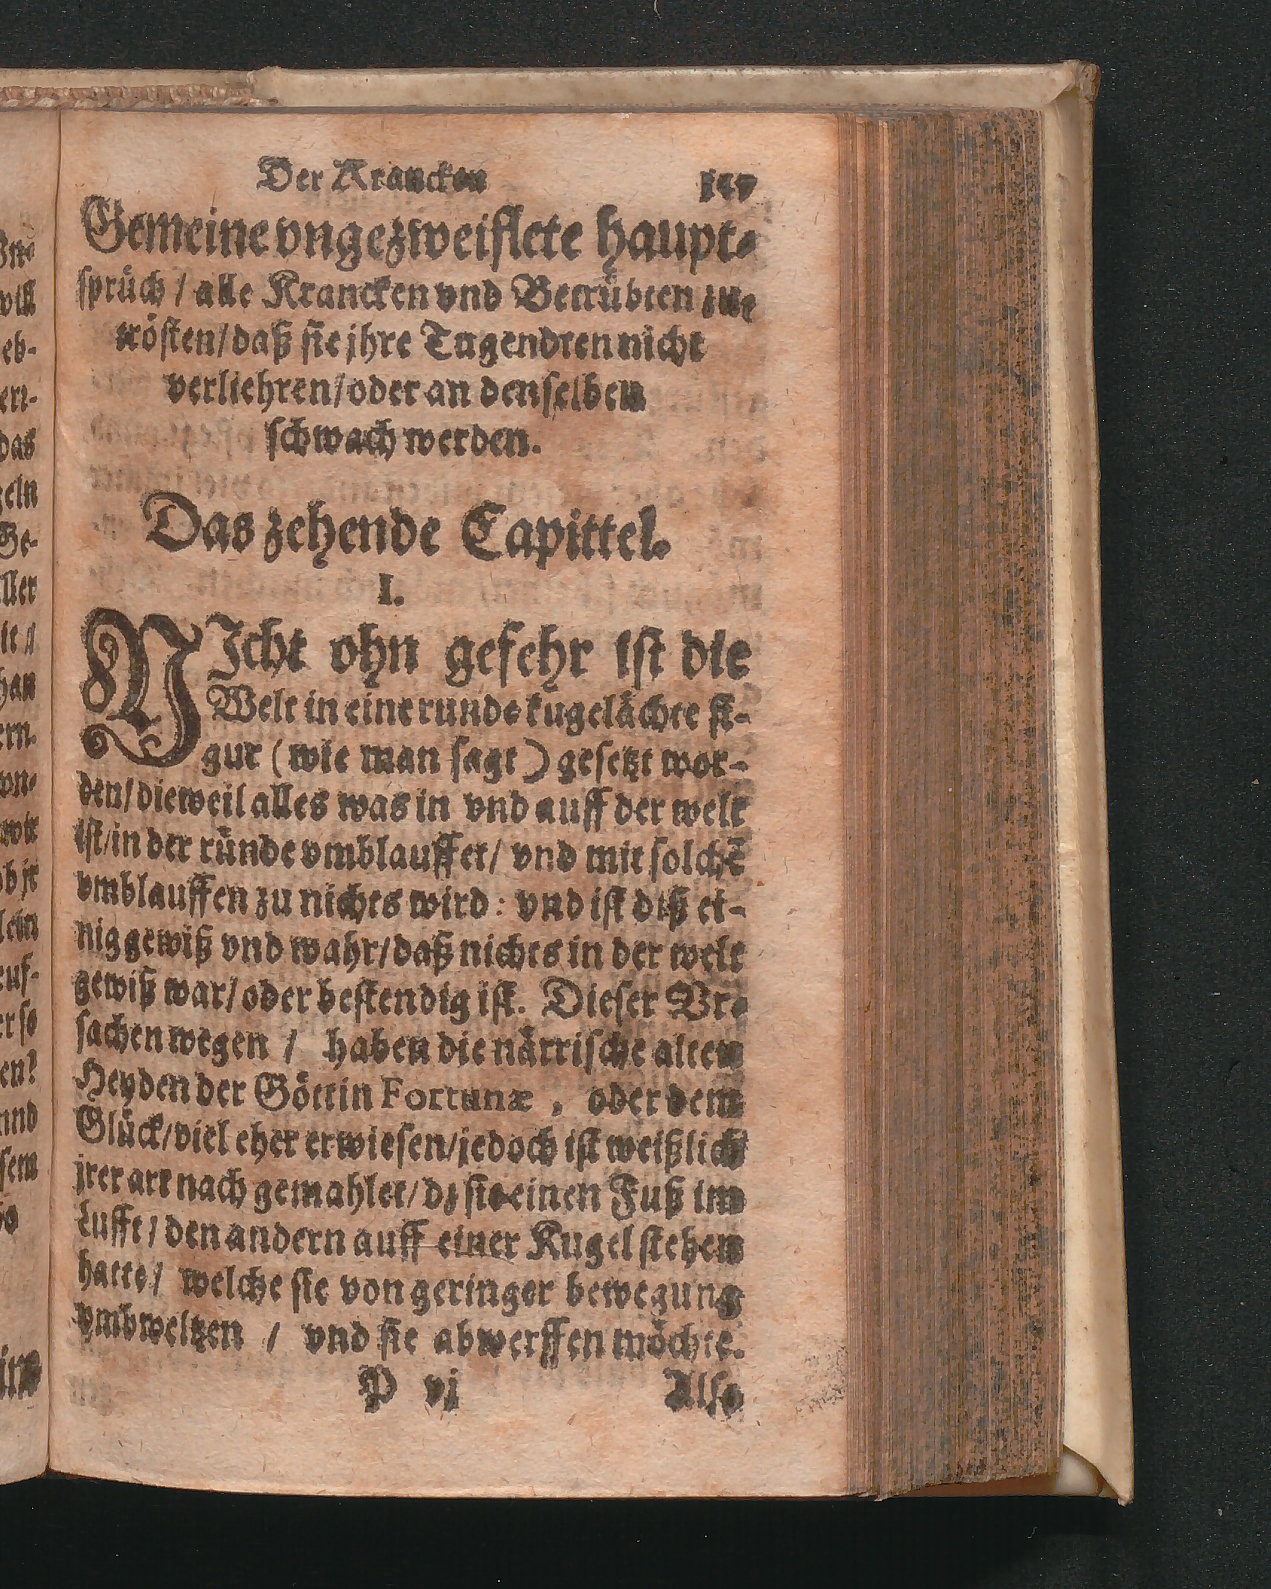 Der Krancken 347
Gemeine vngezweiflete haupt-
sprüch / alle Krancken vnd Betrübten zue
trösten/daß sie jhre Tugendten nicht
verliehren/oder an denselben
schwach werden.
Das zehende Capittel.
I.
NIcht ohn gefehr ist die
Welt in eine runde kugelächte fi-
gur (wie man sagt) gesetzt wor-
den/dieweil alles was in vnd auff der welt
ist/in der ründe vmblauffet/ vnd mit solchē
vmblauffen zu nichts wird: vnd ist diß ei-
nig gewiß vnd wahr/daß nichts in der welt
gewiß war/oder bestendig ist. Dieser Vr-
sachen wegen / haben die närrische alten
Heyden der Göttin Fortunæ, oder dem
Glück/viel eher erwiesen/jedoch ist weißlich
jrer art nach gemahlet/dz sie einen Fuß im
Lufft/den andern auff einer Kugel stehen
hatte/ welche sie von geringer bewegung
vmbweltzen / vnd sie abwerffen möchte.
P vj Also